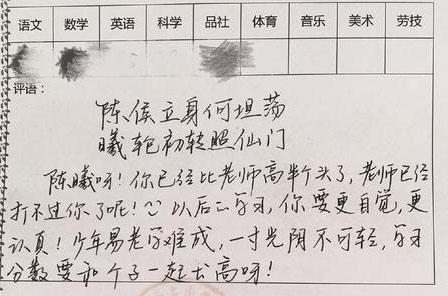 语文 数学 英语 科学 品社 体育 音乐 美术 劳技
评语：
陈侯立身何坦荡
曦轮初转照仙门
陈曦呀！你已经比老师高半个头了，老师已经
打不过你了呢！以后的学习，你要更自觉，更
认真！少年易老学难成，一寸光阴不可轻，学习
分数要和个子一起长高呀！